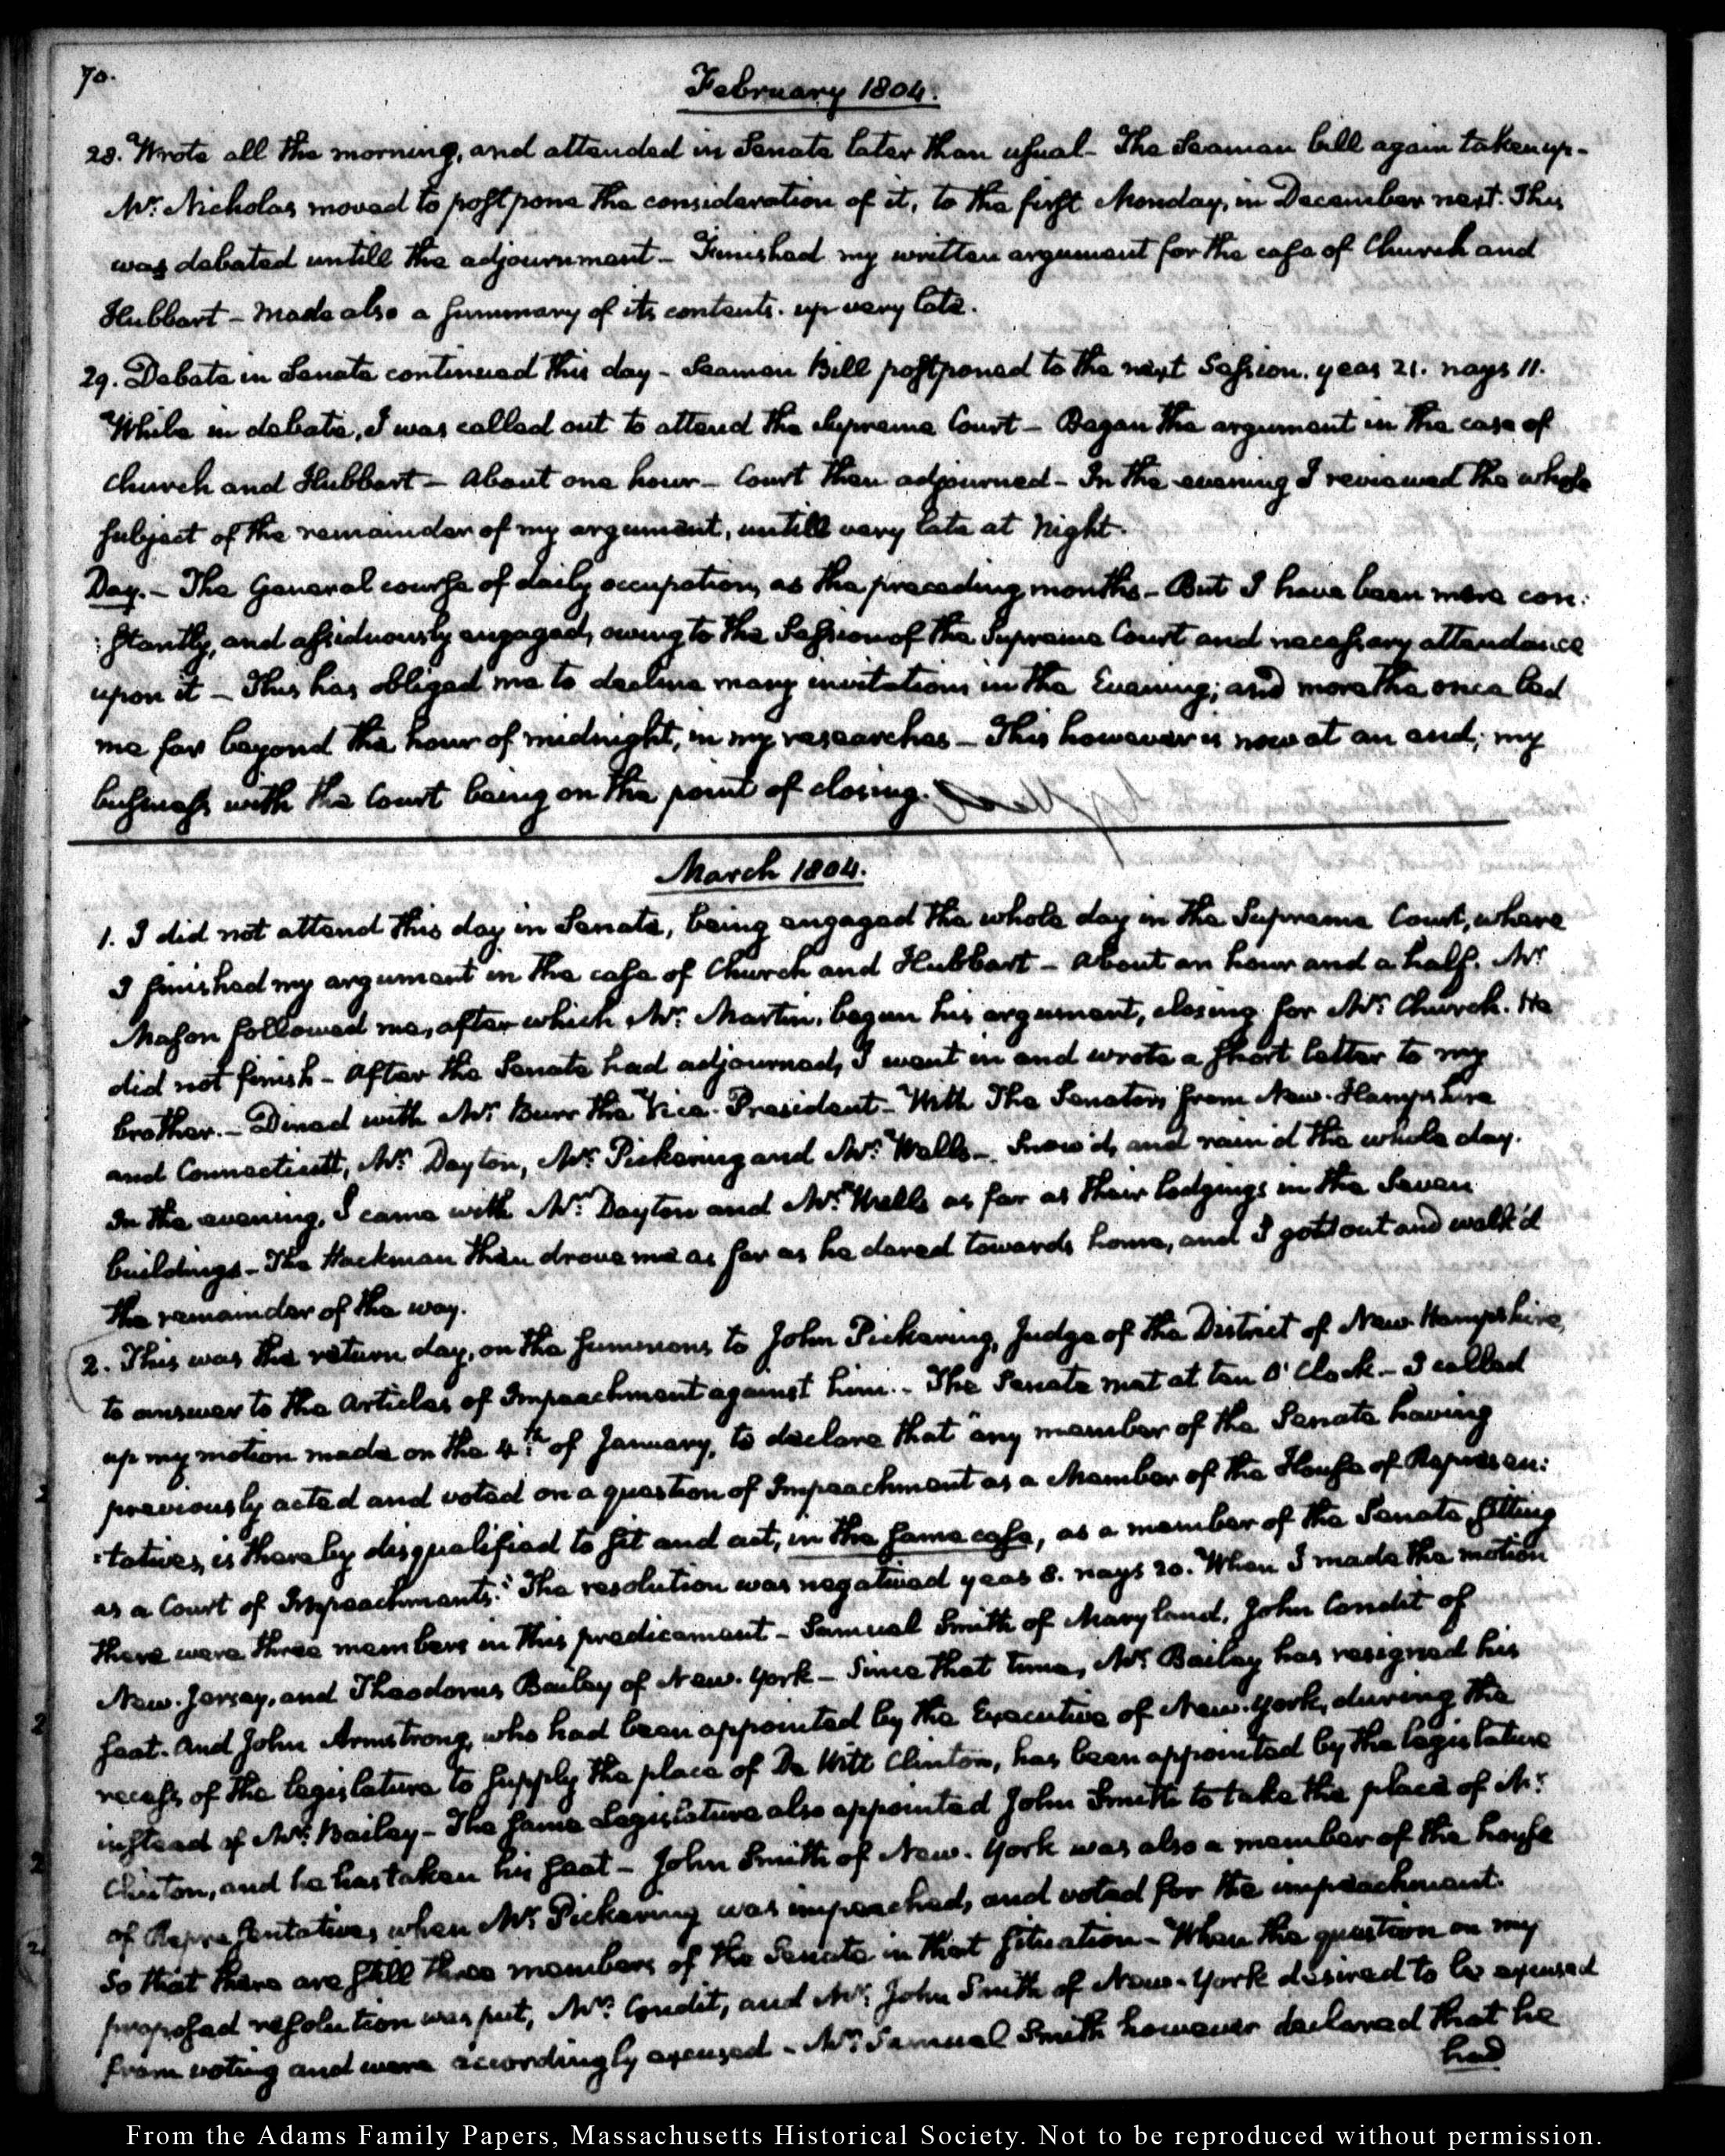 70.
February 1804.
28. Wrote all the morning, and attended in Senate later than usual - The Seamen bill again taken up -
Mr. Nicholas moved to postpone the consideration of it, to the first Monday, in December next. This
was debated untill the adjournment - Finished my written argument for the case of Church and
Hubbart - Made also a summary of its contents. up very late.
29. Debate in Senate continued this day - Seamen Bill postponed to the next Session. yeas 21. nays 11.
While in debate, I was called out to attend the Supreme Court - Began the argument in the case of
Church and Hubbart - About one hour - Court then adjourned - In the evening I reviewed the whole
subject of the remainder of my argument, untill very late at Night.
Day. - The General course of daily occupation, as the preceding months - But I have been more con:
:stantly, and assiduously engaged, owing to the Session of the Supreme Court and necessary attendance
upon it - This has obliged me to decline many invitations in the Evening; and more the once led
me far beyond the hour of midnight, in my researches - This however is now at an end; my
business with the Court being on the point of closing.
March 1804.
1. I did not attend this day in Senate, being engaged the whole day in the Supreme Court, where
I finished my argument in the case of Church and Hubbart - About an hour and a half. Mr.
Mason followed me, after which Mr. Martin, began his argument, closing for Mr. Church. He
did not finish - After the Senate had adjourned, I went in and wrote a short letter to my
brother. - Dined with Mr. Burr the Vice-President - With The Senators from New-Hampshire
and Connecticutt, Mr. Dayton, Mr. Pickering and Mr. Wells - Snow'd, and rain'd the whole day.
In the evening, I came with Mr. Dayton and Mr. Wells as far as their lodgings in the Seven
buildings - The Hackman then drove me as far as he dared towards home, and I gott out and walk'd
the remainder of the way.
2. This was the return day, on the summons to John Pickering, Judge of the District of New-Hampshire,
to answer to the Articles of Impeachment against him. - The Senate met at ten O'Clock - I called
up my motion made on the 4th. of January, to declare that "any member of the Senate having
previously acted and voted on a question of Impeachment as a Member of the House of Represen:
:tatives, is thereby disqualified to sit and act, in the same case, as a member of the Senate, sitting
as a Court of Impeachments." The resolution was negatived yeas 8. nays 20. When I made the motion
there were three members in this predicament - Samuel Smith of Maryland, John Condit of
New-Jersey, and Theodorus Bailey of New-York - Since that time, Mr. Bailey has resigned his
seat. And John Armstrong, who had been appointed by the Executive of New-York, during the
recess of the legislature to supply the place of De Witt Clinton, has been appointed by the legislature
instead of Mr. Bailey - The same Legislature also appointed John Smith to take the place of Mr.
Clinton, and he has taken his seat - John Smith of New-York was also a member of the house
of Representatives when Mr. Pickering was impeached, and voted for the impeachment.
So that there are still three members of the Senate in that situation - When the question on my
proposed resolution was put, Mr. Condit, and Mr. John Smith of New-York desired to be excused
from voting and were accordingly excused - Mr. Samuel Smith however declared that he
had
From the Adams Family Papers, Massachusetts Historical Society. Not to be reproduced without permission.